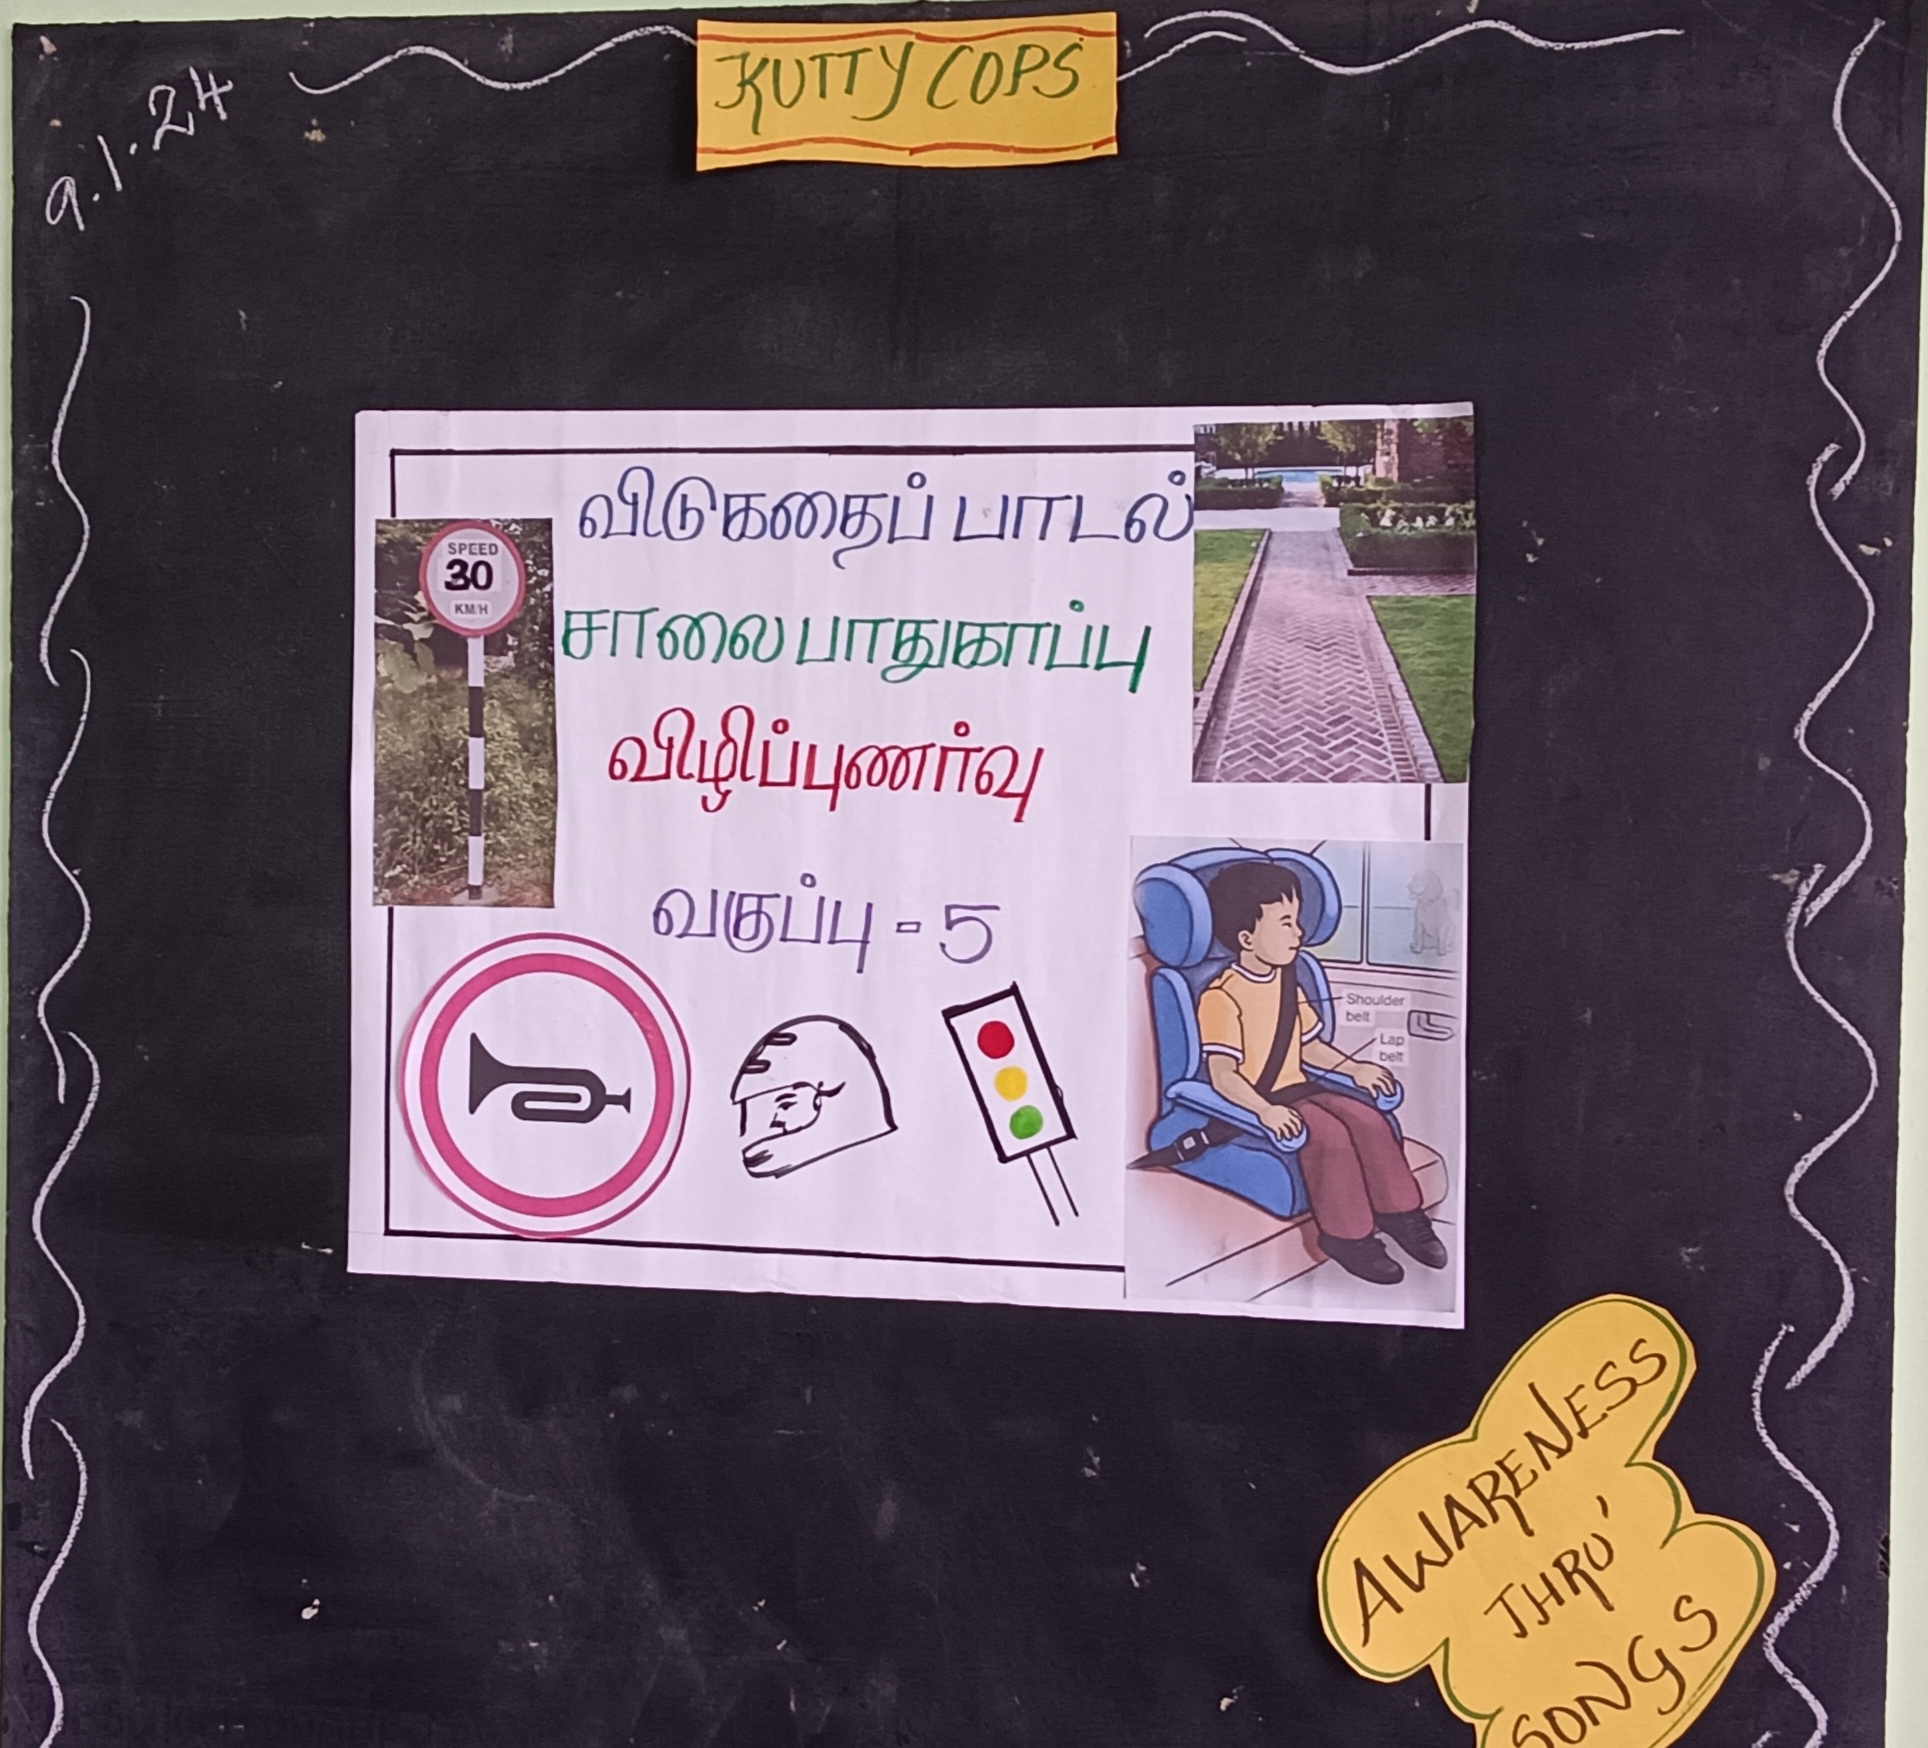 KUTTY COPS
9.1.24
விடுகதைப் பாடல்
SPEED
30
KM/H
சாலை பாதுகாப்பு
விழிப்புணர்வு
வகுப்பு - 5
Shoulder
belt
Lap
belt
AWARENESS
THRU'
SONGS